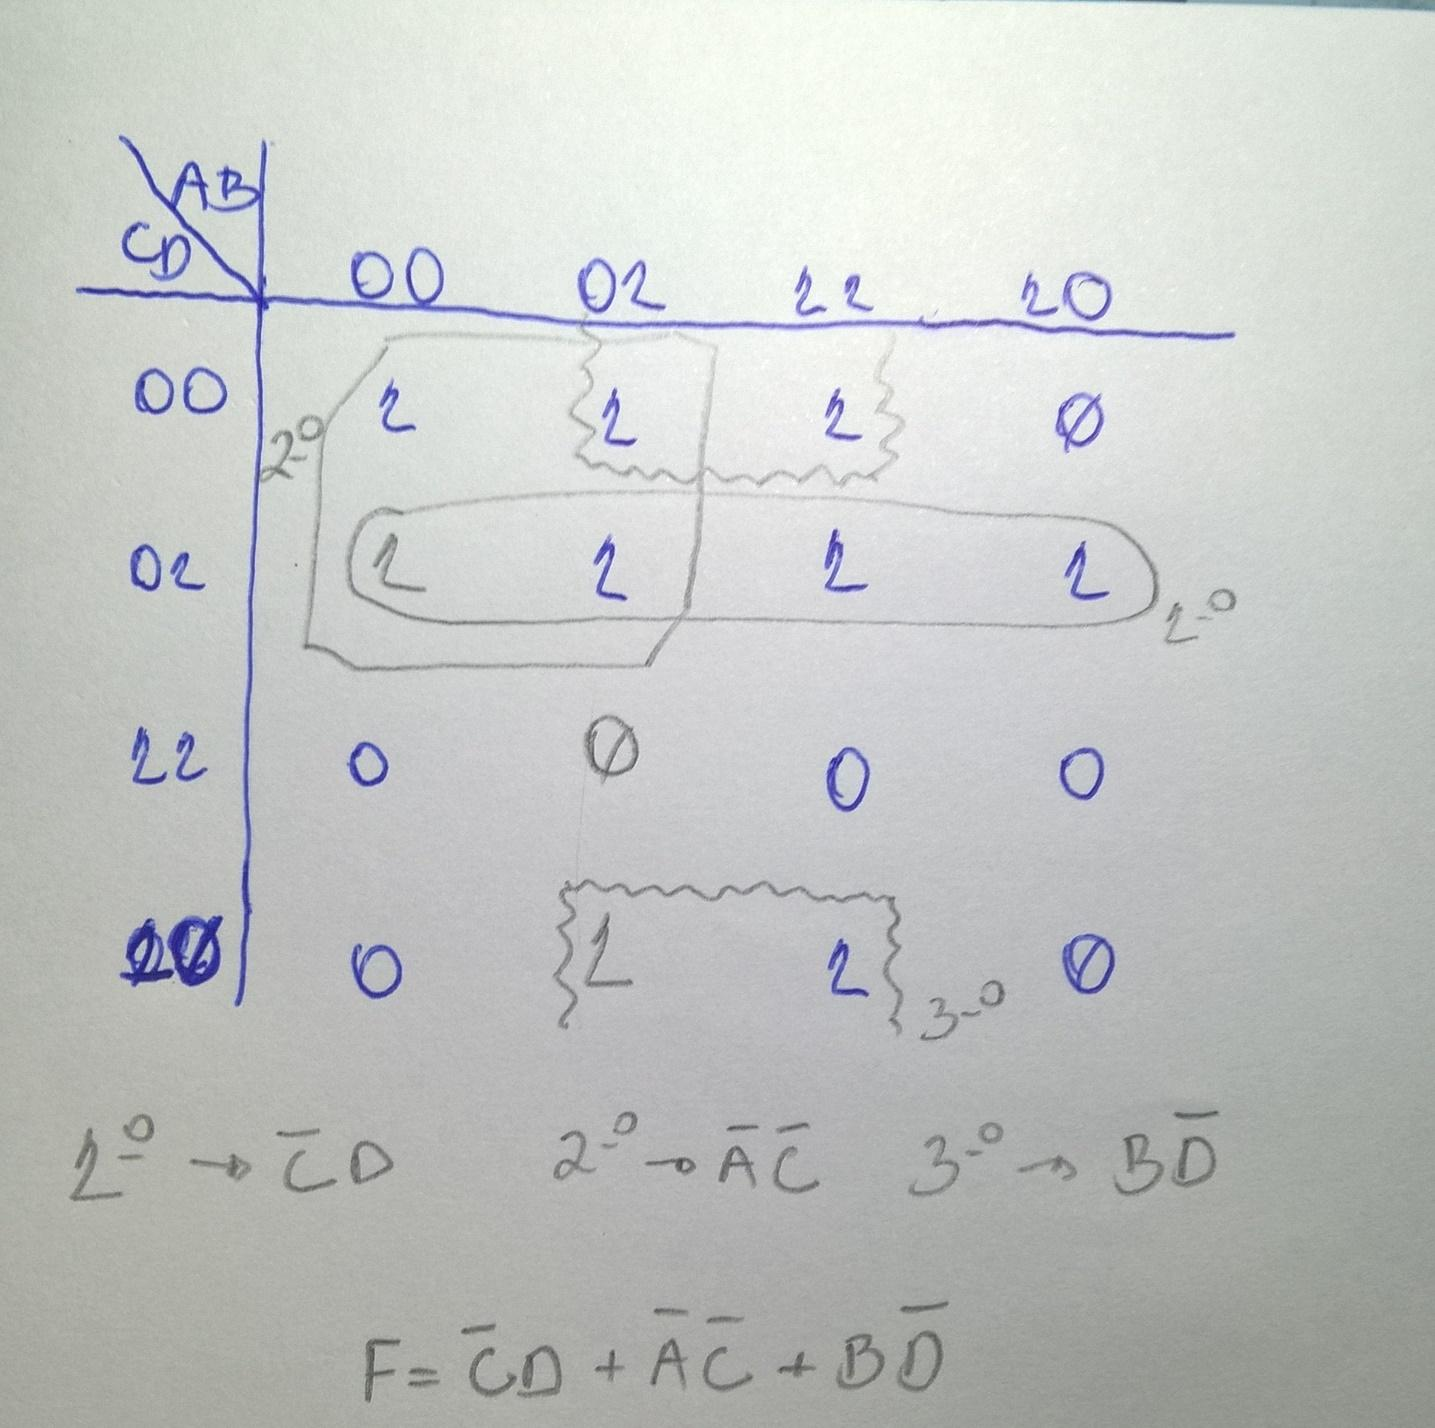 AB
CD
00 01 11 10
00 1 1 1 0
01 1 1 1 1
11 0 0 0 0
10 0 1 1 0
2º
1º
3º
1º → C̅D 2º → A̅C̅ 3º → BD̅
F = C̅D + A̅C̅ + BD̅